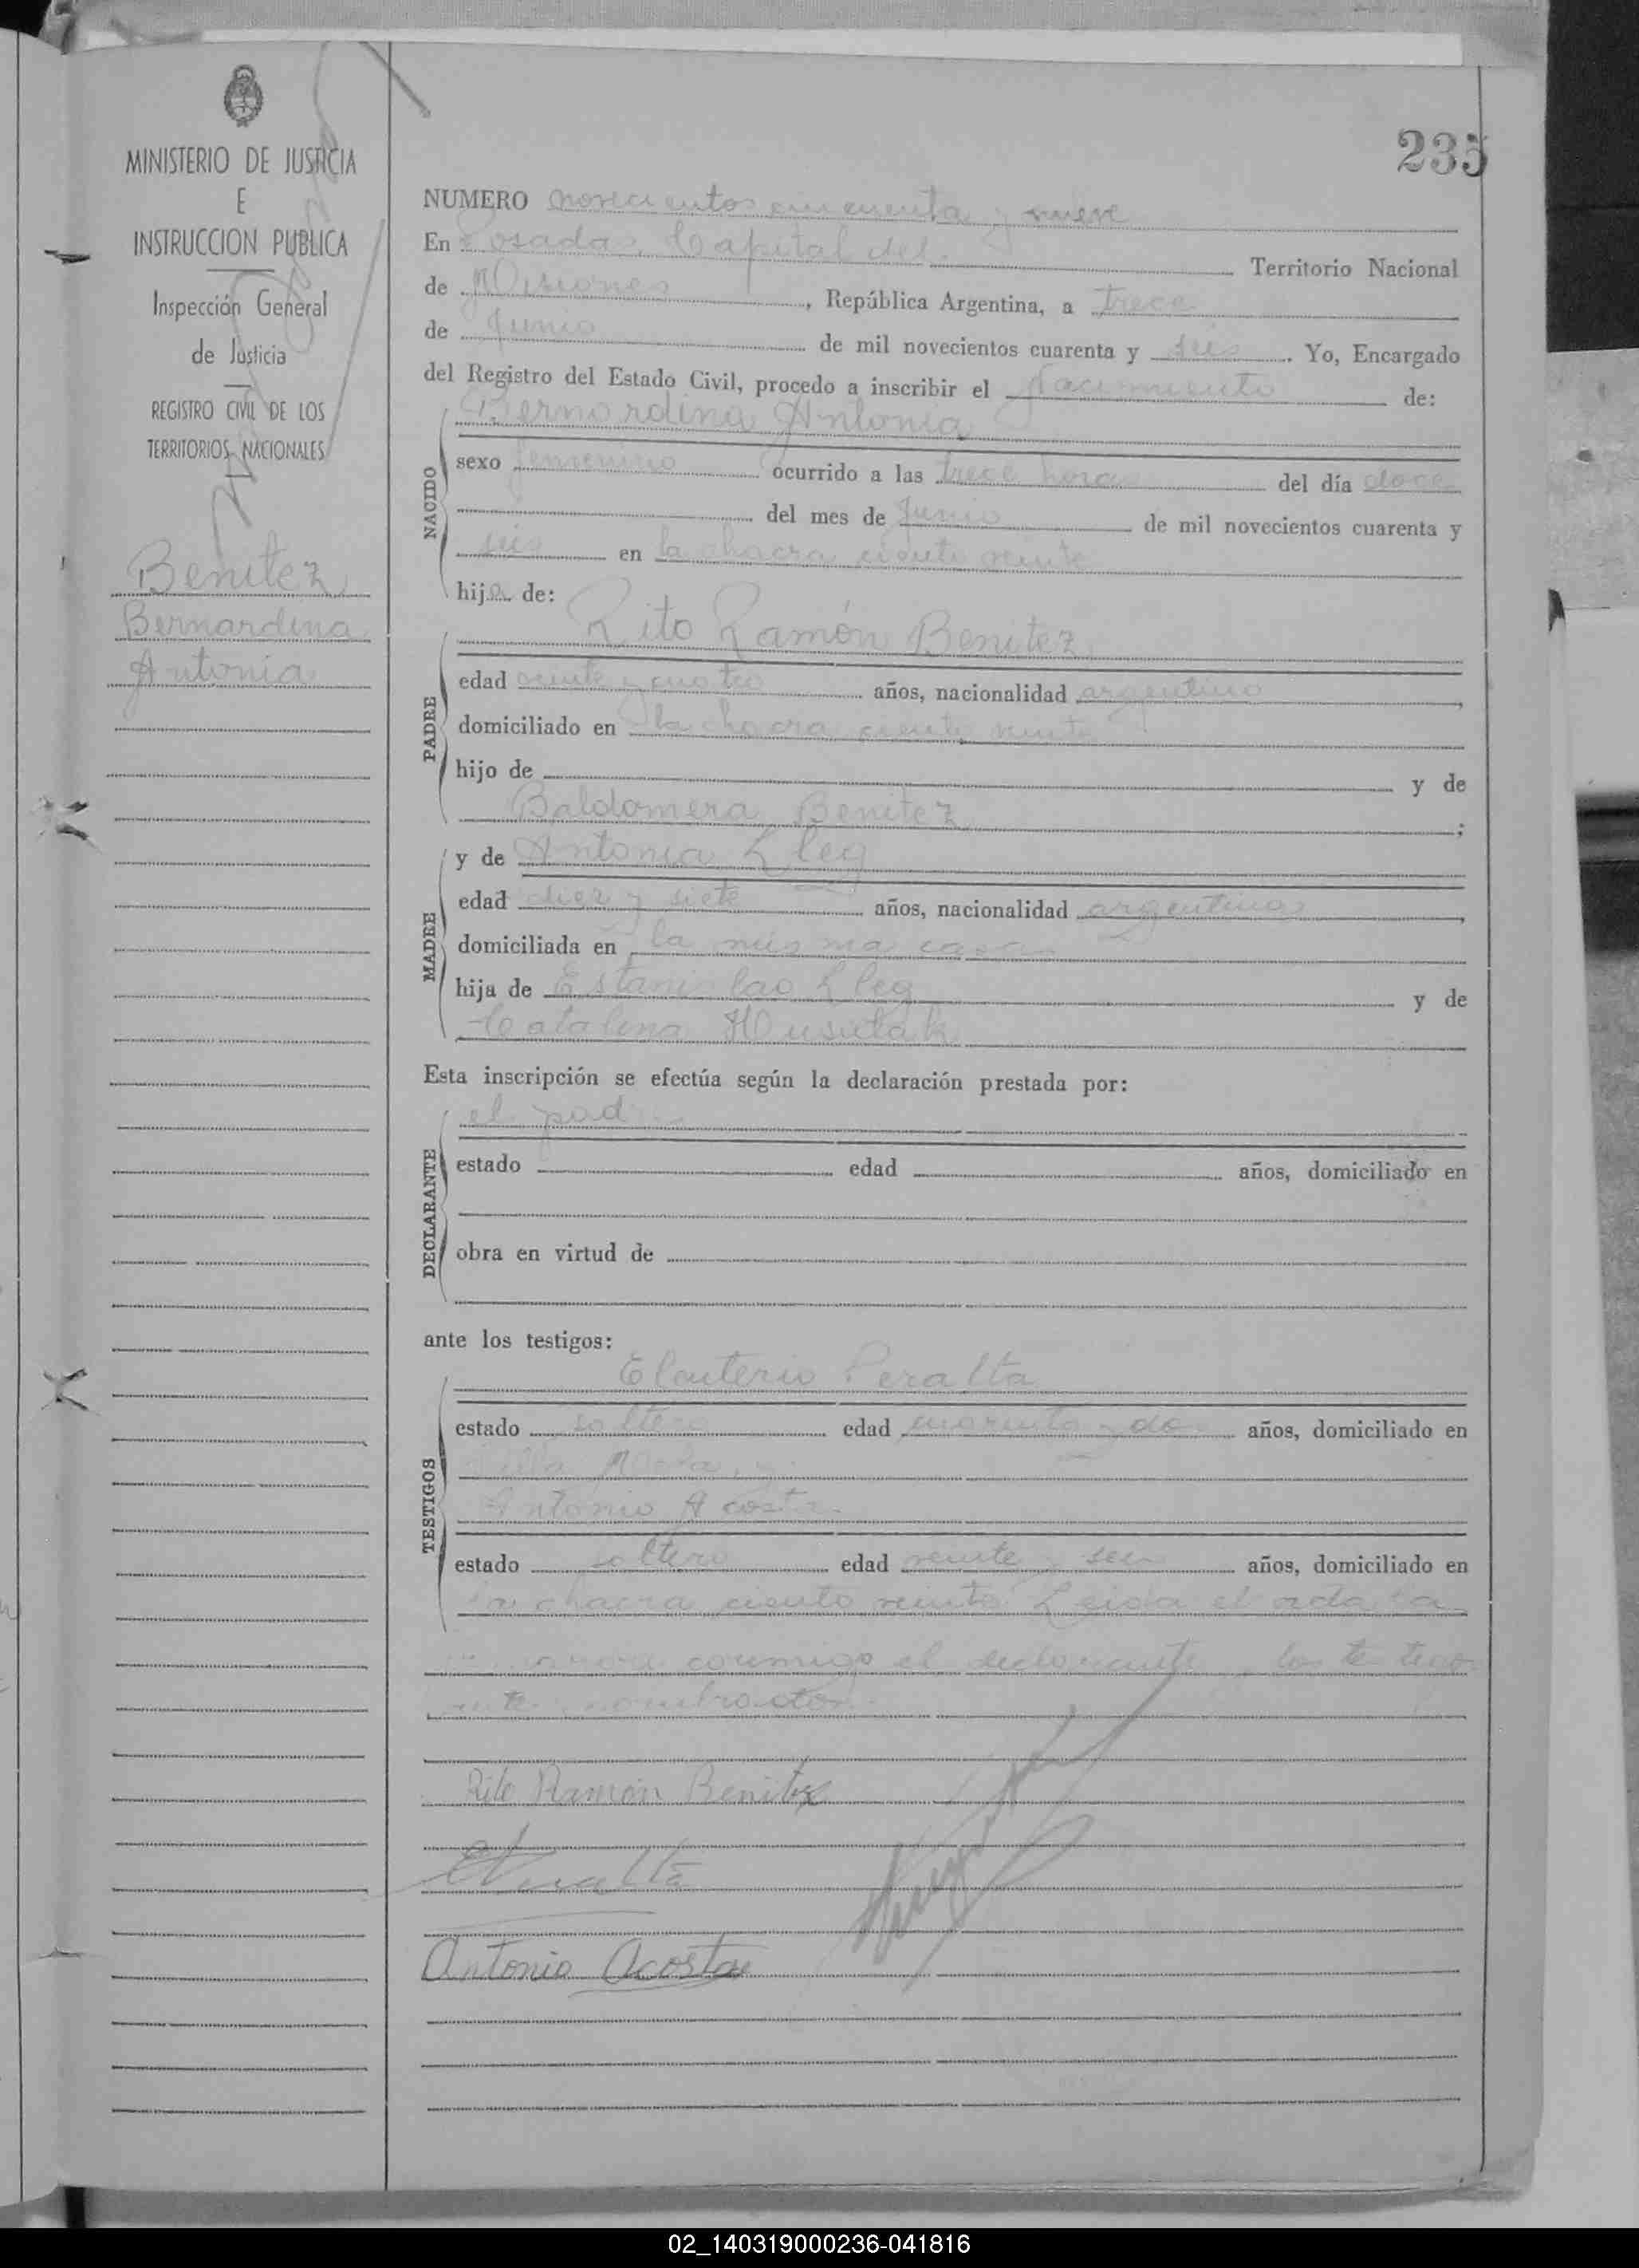 235
MINISTERIO DE JUSTICIA
E
INSTRUCCION PUBLICA
Inspección General
de Justicia
REGISTRO CIVIL DE LOS
TERRITORIOS NACIONALES
Benitez
Bernardina
Antonia
NUMERO novecientos cincuenta y nueve
En Posadas, Capital del Territorio Nacional
de Misiones, República Argentina, a trece
de Junio de mil novecientos cuarenta y seis. Yo, Encargado
del Registro del Estado Civil, procedo a inscribir el Nacimiento de:
NACIDO
Bernardina Antonia
sexo femenino ocurrido a las trece horas del día doce
del mes de Junio de mil novecientos cuarenta y
seis en la chacra ciento veinte
hija de:
PADRE
Rito Ramón Benitez
edad veinte y cuatro años, nacionalidad argentino,
domiciliado en la chacra ciento veinte
hijo de y de
Baldomera Benitez;
MADRE
y de Antonia Lleg
edad diez y siete años, nacionalidad argentina,
domiciliada en la misma casa
hija de Estanislao Lleg y de
Catalina
Esta inscripción se efectúa según la declaración prestada por:
DECLARANTE
el padre
estado edad años, domiciliado en
obra en virtud de
ante los testigos:
TESTIGOS
Eleuterio Peralta
estado soltero edad cuarenta y dos años, domiciliado en
Villa
Antonio Acosta
estado soltero edad veinte y seis años, domiciliado en
la chacra ciento veinte Leida el acta la
conmigo el declarante y los testigos
ante nombrados.
Rito Ramón Benitez
EPeralta
Antonio Acosta
02_140319000236-041816